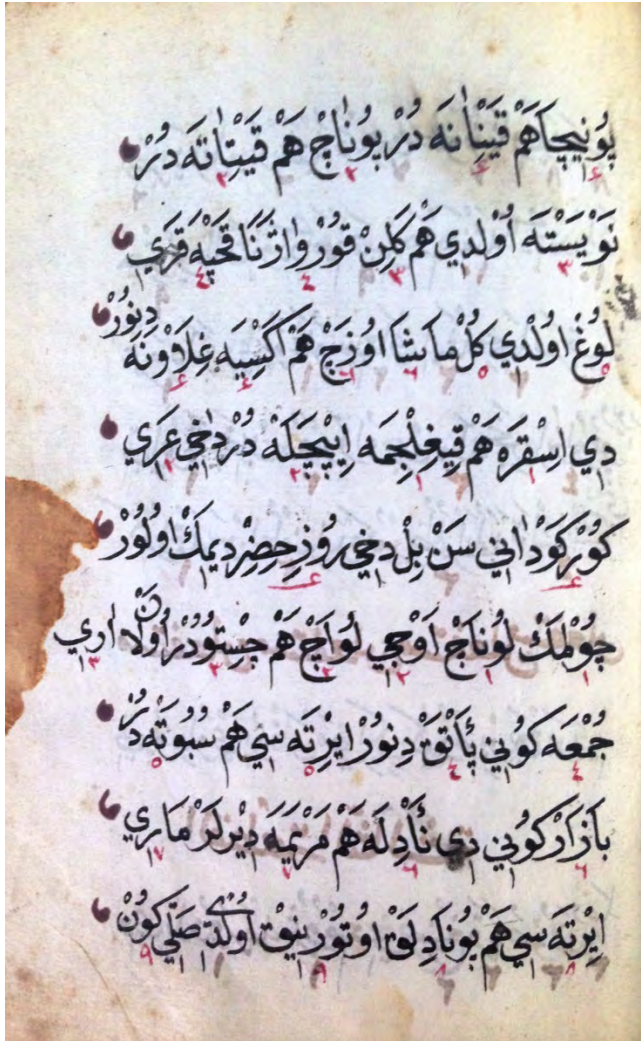 پُونِیچَا هَمْ قَیْنَانَه دُرْ پُونَاچْ هَمْ قَیْنَاتَه دُرْ
نَوْیَسْتَه اُوْلدِي هَمْ كَلِنْ قُوْرْوَا اَرْنَا قَحْبَه قَرِي
لُوغْ اُولْدِي كُلْ مَاشَا اُوژَجْ هَمْ اَكْسِیَه غِلَاوْنَه دِنُورْ
دِي اِسْقَرَه هَمْ قِیغِلْجِمَه اِپْچَلَه دُرْ دَاخِي عَرِي
كُوْرْكَوْدَانِي سَنْ بِلْ دَخِي رُوزِ حِضِرْ دِیمَكْ اُولُورْ
چُوْلمَكْ لُونَاجْ اَوْجِي لُوَاچْ هَمْ چِسْتُو دُرْ اُولَانْ اَرِي
جُمْعَه كُونِي پَأتَقْ دِنُورْ اِیرْتَه سِي هَمْ سُبُوتَه دُرْ
بَازَارْ كُونِي دِي نَأدِلَه هَمْ مَرْیَمَه دِیْرلَرْ مَارِي
اِیرْتَه سِي هَمْ پُونَادِلَقْ اُوتُورْنِیقْ اُولْدِي صَلِّي كُونْ